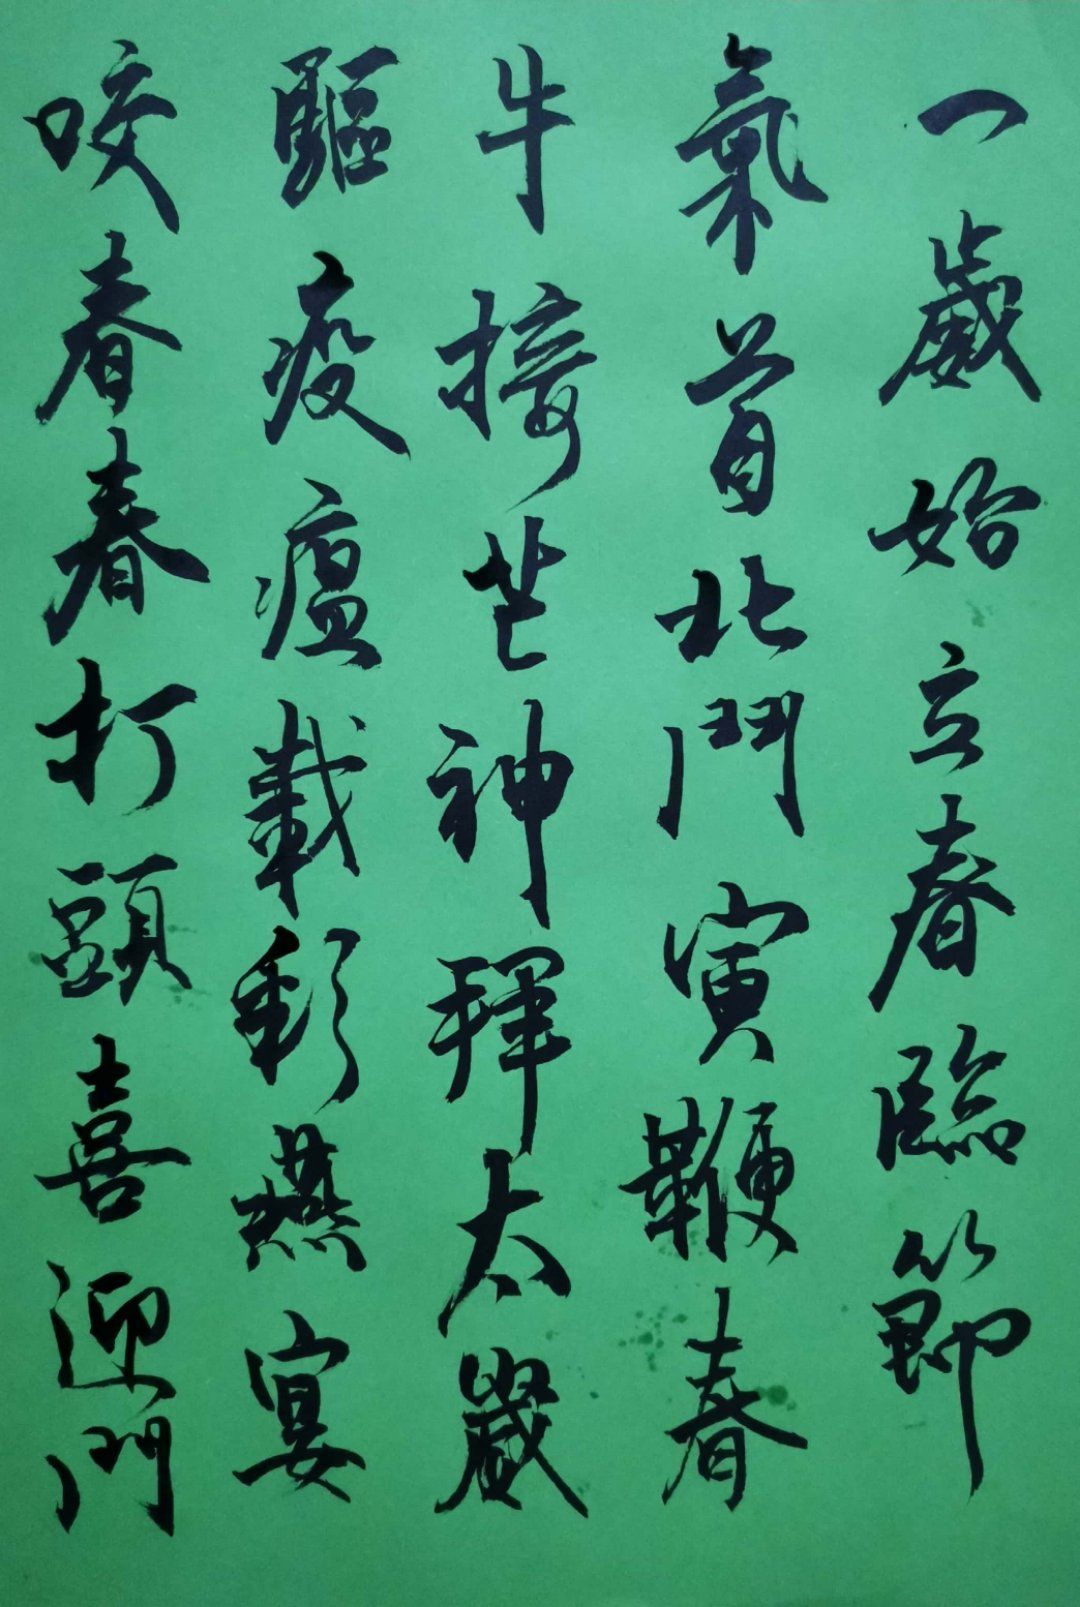 一歲始立春臨節
氣首北鬥寅鞭春
牛接芒神拜太歲
驅疫瘟載彩燕宴
咬春春打頭喜迎門